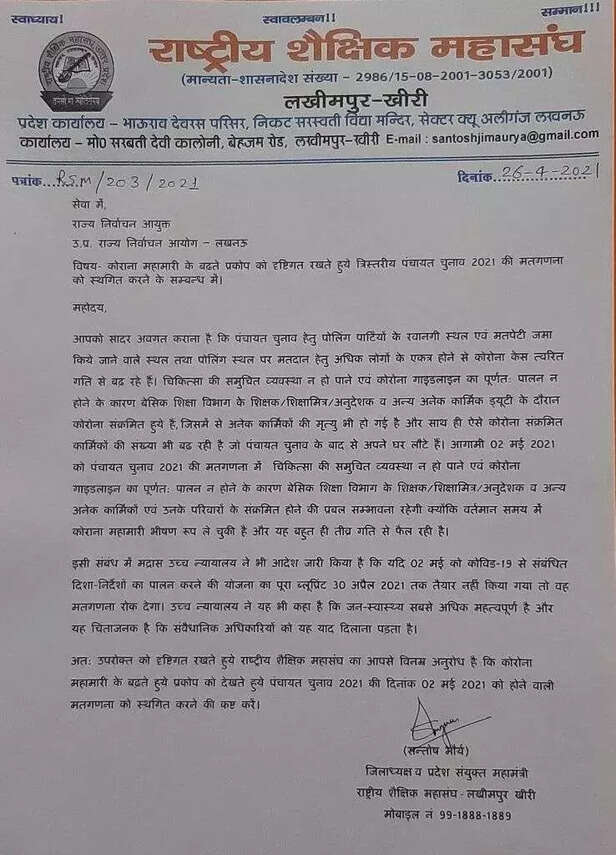 स्वाध्याय! स्वावलम्बन!! सम्मान!!!
राष्ट्रीय शैक्षिक महासंघ
(मान्यता-शासनादेश संख्या - 2986/15-08-2001-3053/2001)
लखीमपुर-खीरी
प्रदेश कार्यालय - भाऊराव देवरस परिसर, निकट सरस्वती विद्या मन्दिर, सेक्टर क्यू अलीगंज लखनऊ
कार्यालय - मो0 सरबती देवी कालोनी, बेहजम रोड, लखीमपुर-खीरी E-mail : santoshjimaurya@gmail.com
पत्रांक. R.S.M/203/2021 दिनांक. 26-4-2021
सेवा में,
राज्य निर्वाचन आयुक्त
उ.प्र. राज्य निर्वाचन आयोग - लखनऊ
विषय- कोराना महामारी के बढते प्रकोप को दृष्टिगत रखते हुये त्रिस्तरीय पंचायत चुनाव 2021 की मतगणना
को स्थगित करने के सम्बन्ध में।
महोदय,
आपको सादर अवगत कराना है कि पंचायत चुनाव हेतु पोलिंग पार्टियों के रवानगी स्थल एवं मतपेटी जमा
किये जाने वाले स्थल तथा पोलिंग स्थल पर मतदान हेतु अधिक लोगों के एकत्र होने से कोरोना केस त्वरित
गति से बढ रहे हैं। चिकित्सा की समुचित व्यवस्था न हो पाने एवं कोरोना गाइडलाइन का पूर्णत: पालन न
होने के कारण बेसिक शिक्षा विभाग के शिक्षक/शिक्षामित्र/अनुदेशक व अन्य अनेक कार्मिक ड्यूटी के दौरान
कोरोना संक्रमित हुये हैं,जिसमें से अनेक कार्मिकों की मृत्यु भी हो गई है और साथ ही ऐसे कोरोना संक्रमित
कार्मिकों की सख्या भी बढ रही है जो पंचायत चुनाव के बाद से अपने घर लौटे हैं। आगामी 02 मई 2021
को पंचायत चुनाव 2021 की मतगणना में चिकित्सा की समुचित व्यवस्था न हो पाने एवं कोरोना
गाइडलाइन का पूर्णत: पालन न होने के कारण बेसिक शिक्षा विभाग के शिक्षक/शिक्षामित्र/अनुदेशक व अन्य
अनेक कार्मिकों एवं उनके परिवारों के संक्रमित होने की प्रबल सम्भावना रहेगी क्योंकि वर्तमान समय में
कोराना महामारी भीषण रूप ले चुकी है और यह बहुत ही तीव्र गति से फैल रही है।
इसी संबंध में मद्रास उच्च न्यायालय ने भी आदेश जारी किया है कि यदि 02 मई को कोविड-19 से संबंधित
दिशा-निर्देशों का पालन करने की योजना का पूरा ब्लूप्रिंट 30 अप्रैल 2021 तक तैयार नहीं किया गया तो वह
मतगणना रोक देगा। उच्च न्यायालय ने यह भी कहा है कि जन-स्वास्थ्य सबसे अधिक महत्वपूर्ण है और
यह चिंताजनक है कि संवैधानिक अधिकारियों को यह याद दिलाना पडता है।
अत: उपरोक्त को दृष्टिगत रखते हुये राष्ट्रीय शैक्षिक महासंघ का आपसे विनम्र अनुरोध है कि कोरोना
महामारी के बढते हुये प्रकोप को देखते हुये पंचायत चुनाव 2021 की दिनांक 02 मई 2021 को होने वाली
मतगणना को स्थगित करने की कष्ट करें।
(सन्तोष मौर्य)
जिलाध्यक्ष व प्रदेश संयुक्त महामंत्री
राष्ट्रीय शैक्षिक महासंघ - लखीमपुर खीरी
मोबाइल नं 99-1888-1889